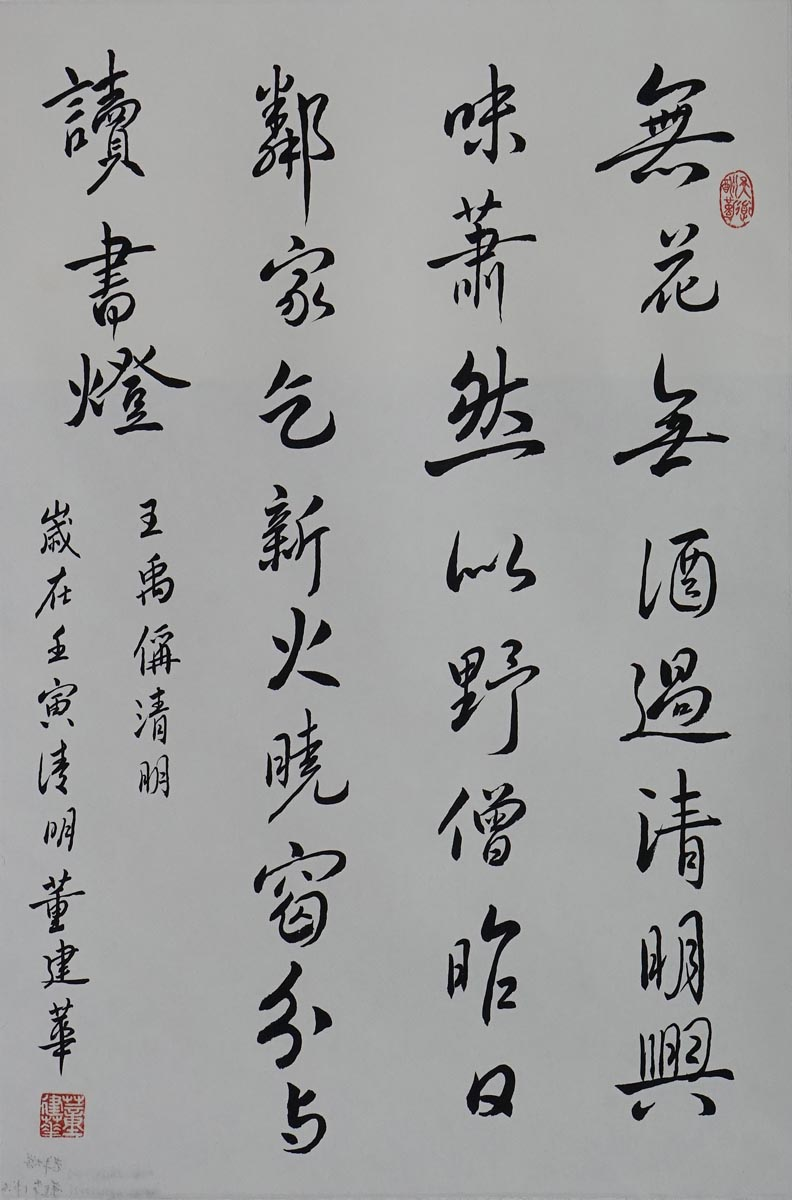 無花無酒過清明興
味蕭然似野僧昨日
鄰家乞新火曉窗分与
讀書燈
王禹偁清明
歲在壬寅清明董建華
董建華